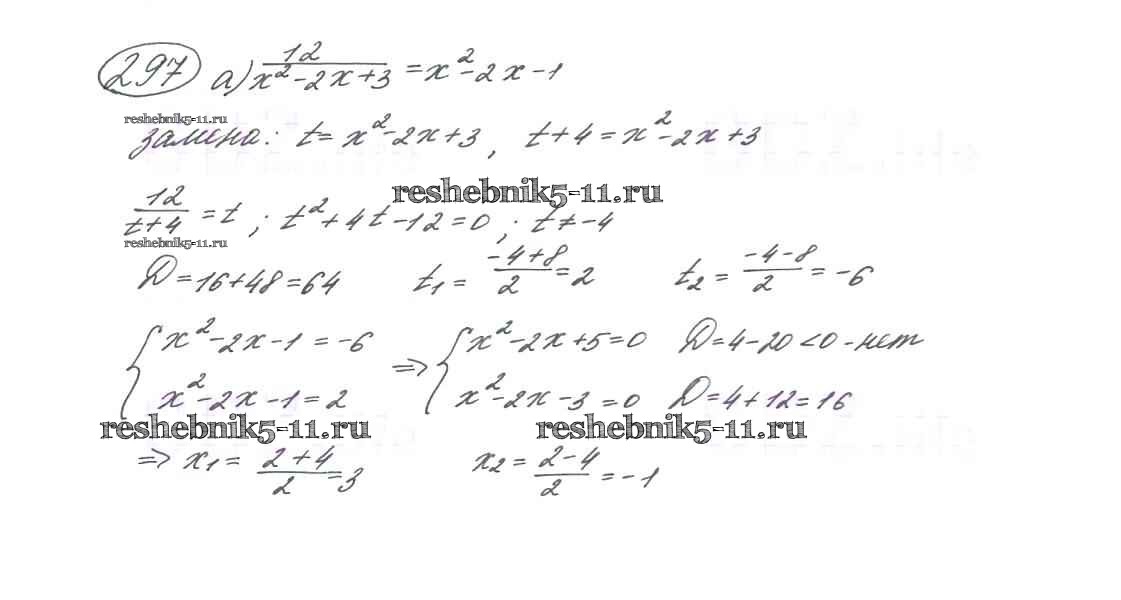 297 а) 12/(x²-2x+3) = x²-2x-1
reshebnik5-11.ru
замена: t = x²-2x+3, t+4 = x²-2x+3
reshebnik5-11.ru
12/(t+4) = t; t²+4t-12=0; t≠-4
reshebnik5-11.ru
D=16+48=64 t₁ = (-4+8)/2 = 2 t₂ = (-4-8)/2 = -6
{ x²-2x-1 = -6 => { x²-2x+5=0 D=4-20<0-нет
x²-2x-1=2 x²-2x-3=0 D=4+12=16
reshebnik5-11.ru reshebnik5-11.ru
=> x₁ = (2+4)/2 = 3 x₂ = (2-4)/2 = -1